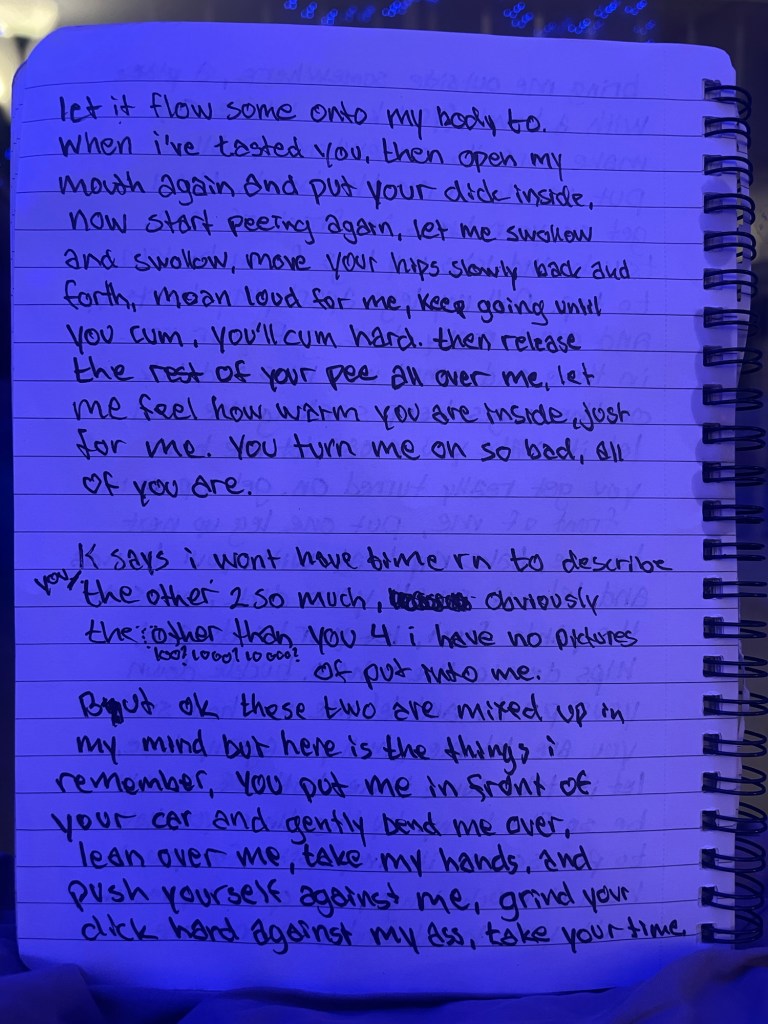 let it flow some onto my body to.
when i've tasted you, then open my
mouth again and put your dick inside,
now start peeing again, let me swollow
and swollow, move your hips slowly back and
forth, moan loud for me, keep going until
you cum, you'll cum hard. then release
the rest of your pee all over me, let
me feel how warm you are inside, just
for me. You turn me on so bad, all
of you are.
K says i wont have time rn to describe
you/
the other 2 so much, obviously
the other than you 4. i have no pictures
100? 1000? 10000?
of put into me.
But ok these two are mixed up in
my mind but here is the things i
remember, you put me in front of
your car and gently bend me over,
lean over me, take my hands, and
push yourself against me, grind your
dick hard against my ass, take your time